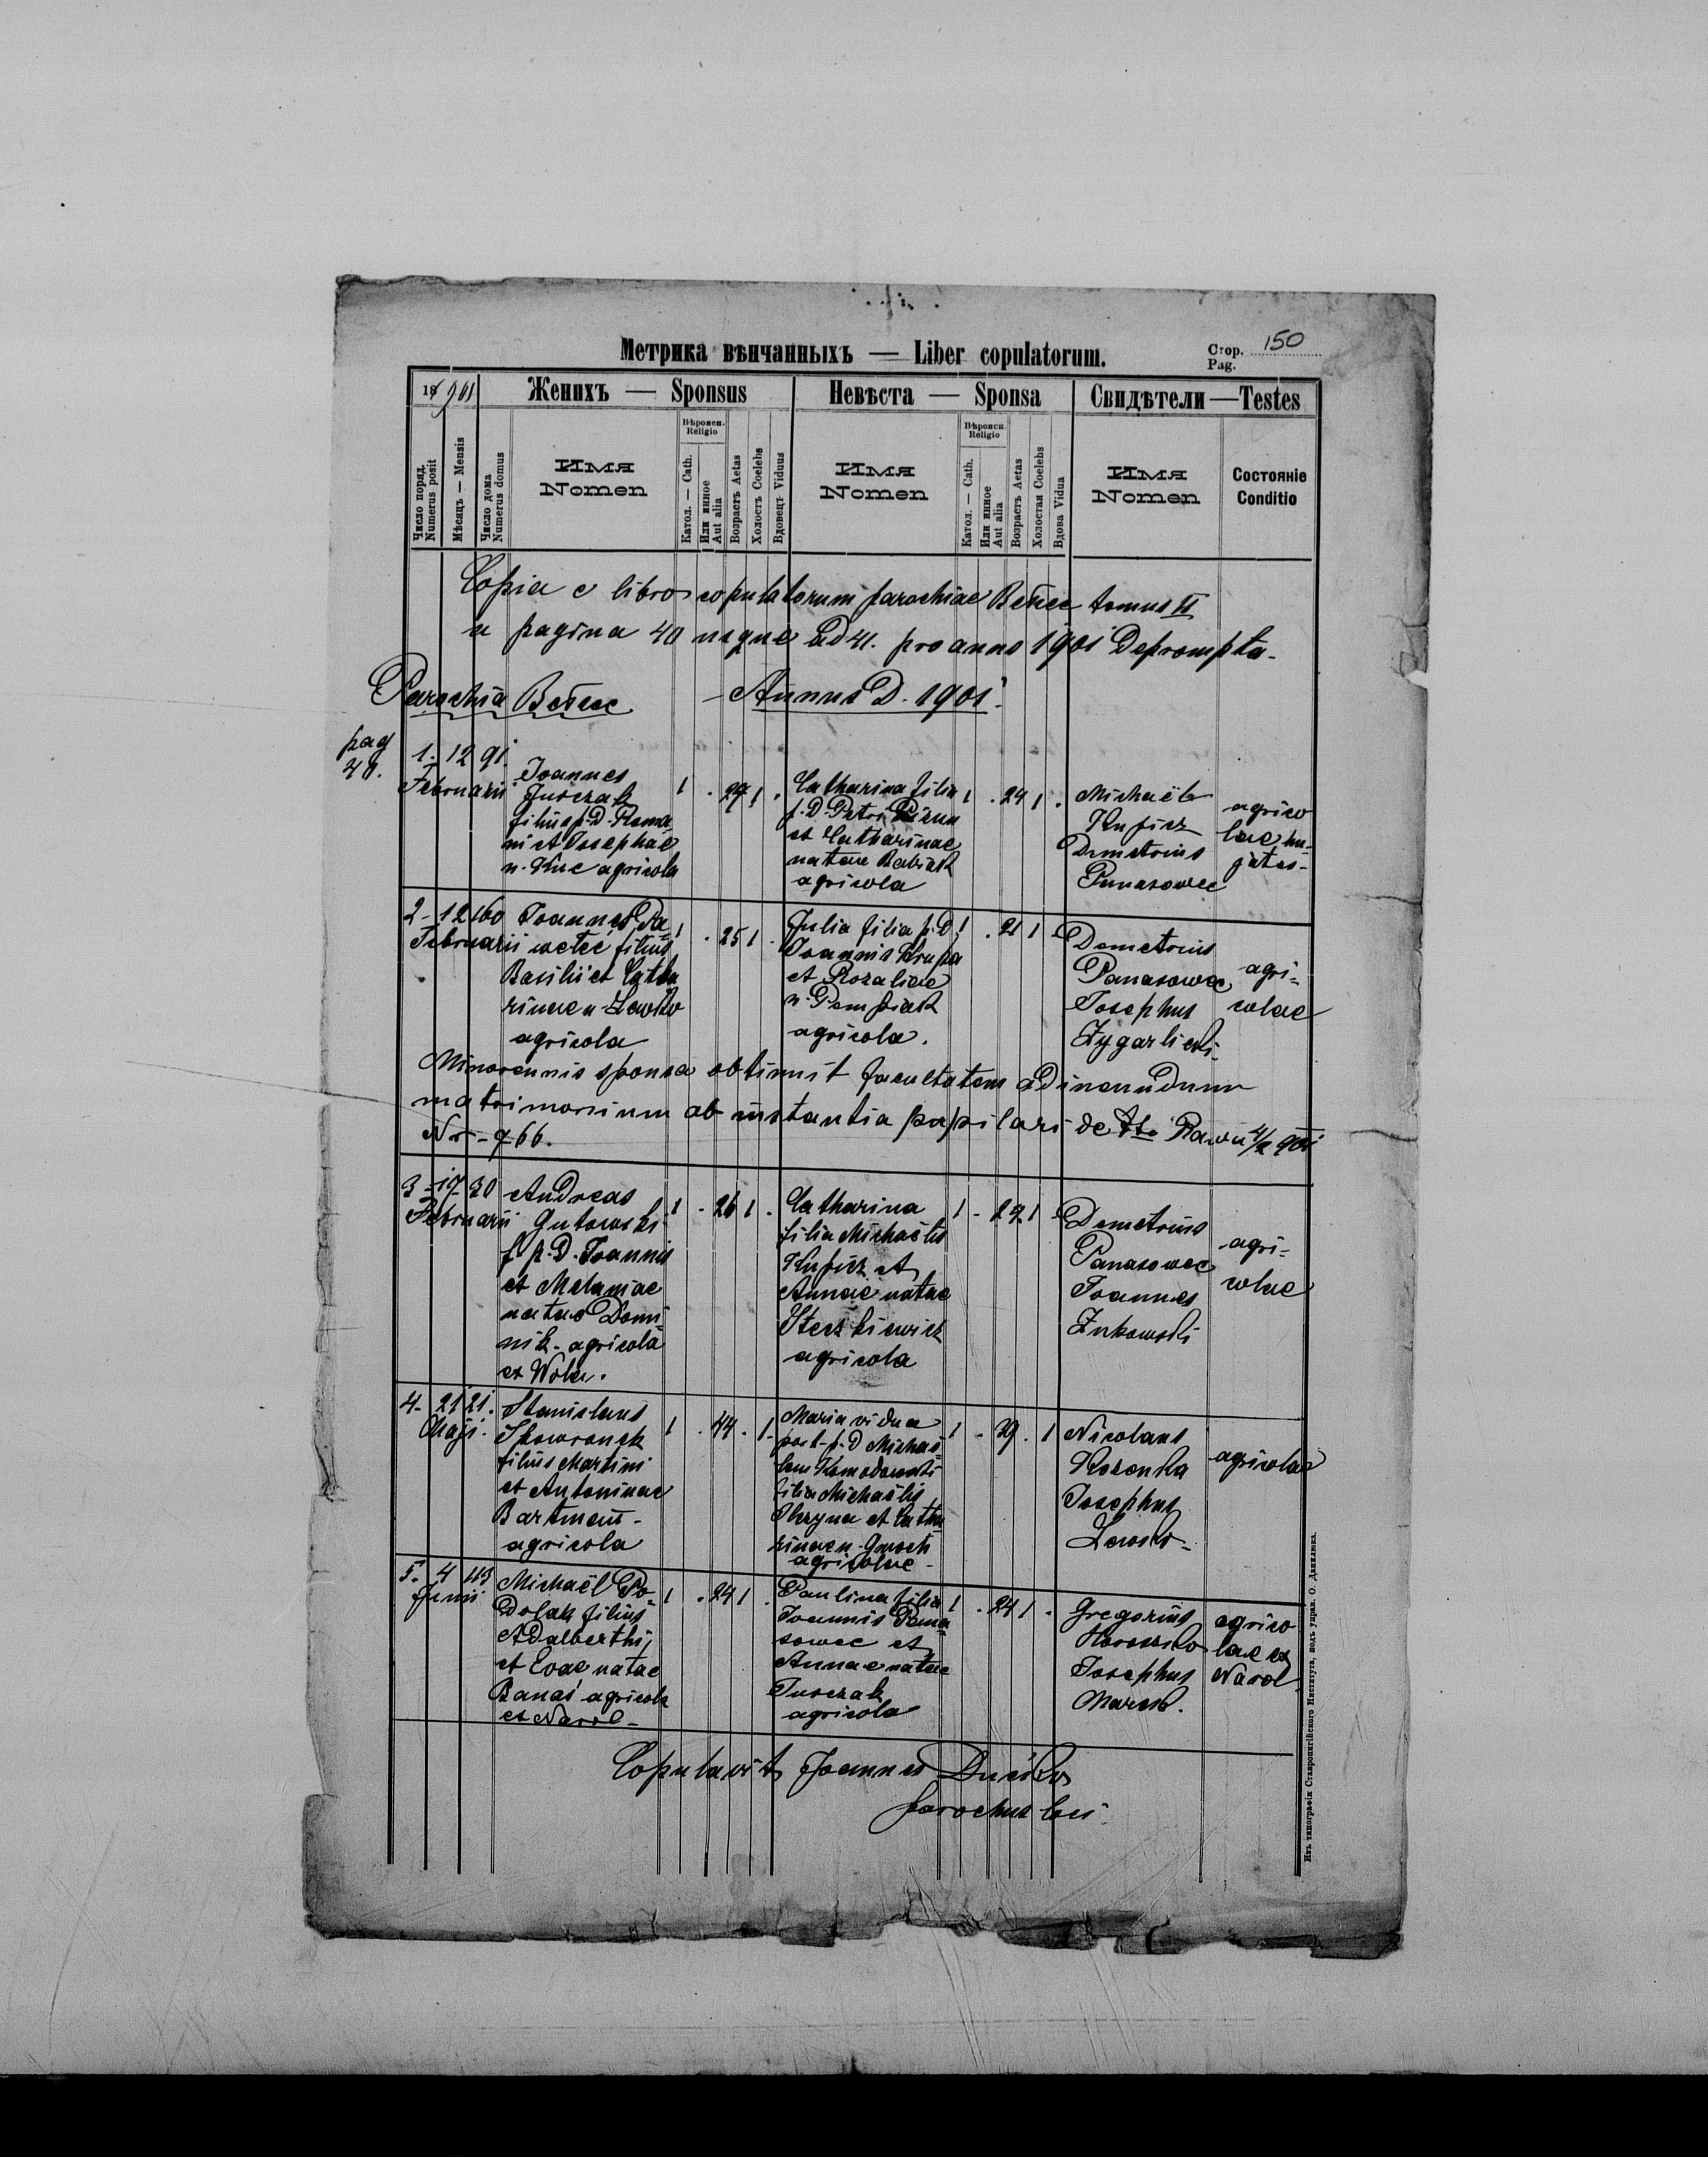 Метрика вѣнчанныхъ — Liber copulatorum.
Стор. Pag. 150
1901
Женихъ — Sponsus
Невѣста — Sponsa
Свидѣтели — Testes
Число поряд. Numerus posit
Мѣсяцъ — Mensis
Число дома Numerus domus
Имя Nomen
Вѣроисп. Religio
Катол. — Cath.
Или инное Aut alia
Возрастъ Aetas
Холостъ Coelebs
Вдовецъ Viduus
Имя Nomen
Вѣроисп. Religio
Катол. — Cath.
Или инное Aut alia
Возрастъ Aetas
Холостая Coelebs
Вдова Vidua
Имя Nomen
Состоянiе Conditio
Copia e libro copulatorum parochiae Bełżec tomus II
a pagina 40 usque ad 41. pro anno 1901 Deprompta-
Parochia Bełżec - Annus D. 1901.
pag 40.
1. 12 91.
Februarii
Joannes
Juśczak
filius p. D. Roma
ni et Josephae
n. Kuc agricola
1 . 27 1 .
Catharina filia
p. D. Petri
et Catharinae
natae Babiak
agricola
1 . 24 1 .
Michaël
Kupicz
Demetrius
Panasowec
agrico
lae hu-
jates-
2- 12 160
Februarii
Joannes Pa-
filius
Basilii et Catha
rinae n. Lewko
agricola
1 . 25 1 .
Julia filia p. D.
Joannis Krupa
et Rozaliae
n. Pempiak
agricola.
1 . 21 1
Demetrius
Panasowec
Josephus
Zygarlicki
agri-
colae
Minorennis sponsa obtinuit facultatem ad ineundum
matrimonium ab instantia pupilari de Rawa 4/2 901
Nr- 766.
3- 17 30
Februarii
Andreas
Gutowski
f. p. D. Joannis
et Melaniae
natae Domi-
nik- agricola
ex Wola.
1 . 26 1 .
Catharina
filia Michaëlis
Kupicz et
Annae natae
Steczkiewicz
agricola
1 - 1
Demetrius
Panasowec
Joannes
Żukowski
agri-
colae
4- 21 21.
Maji.
Stanislaus
Skowronek
filius Martini
et Antoninae
agricola
1 . 44 . 1.
Maria vidua
post p. D Michaë
lem Komodowski
filia Michaëlis
et Catha
rinae n. Groch
agricolae-
1 - 29 . 1
Nicolaus
Kozonka
Josephus
Lewko-
agricolae
5. 4 113
Junii
Michaël Po-
dolak filius
Adalberthi,
et Evae natae
Banaś agricola
ex Narol-
1 . 24 1 .
Paulina filia
Joannis Pana
sowec et
Annae natae
Jusczak
agricola
1 . 24 1 .
Gregorius
Horoszko
Josephus
Marek.
agrico
lae ex
Narol
Copulavit Joannes Dućko
parochus loci
Изъ типографiи Ставропигiйского Института, подъ управ. О. Данилюка.